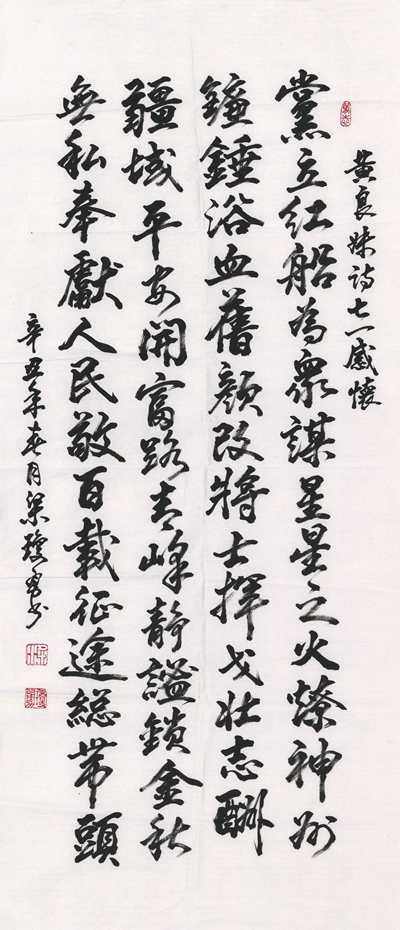 黃良妹詩七一感懷
黨立紅船為衆謀星星之火燎神州
鐮錘浴血舊顔改將士揮戈壯志酬
疆域平安開富路青峰靜謐鎖金秋
無私奉獻人民敬百載征途總帶頭
辛丑年春月梁瓊书